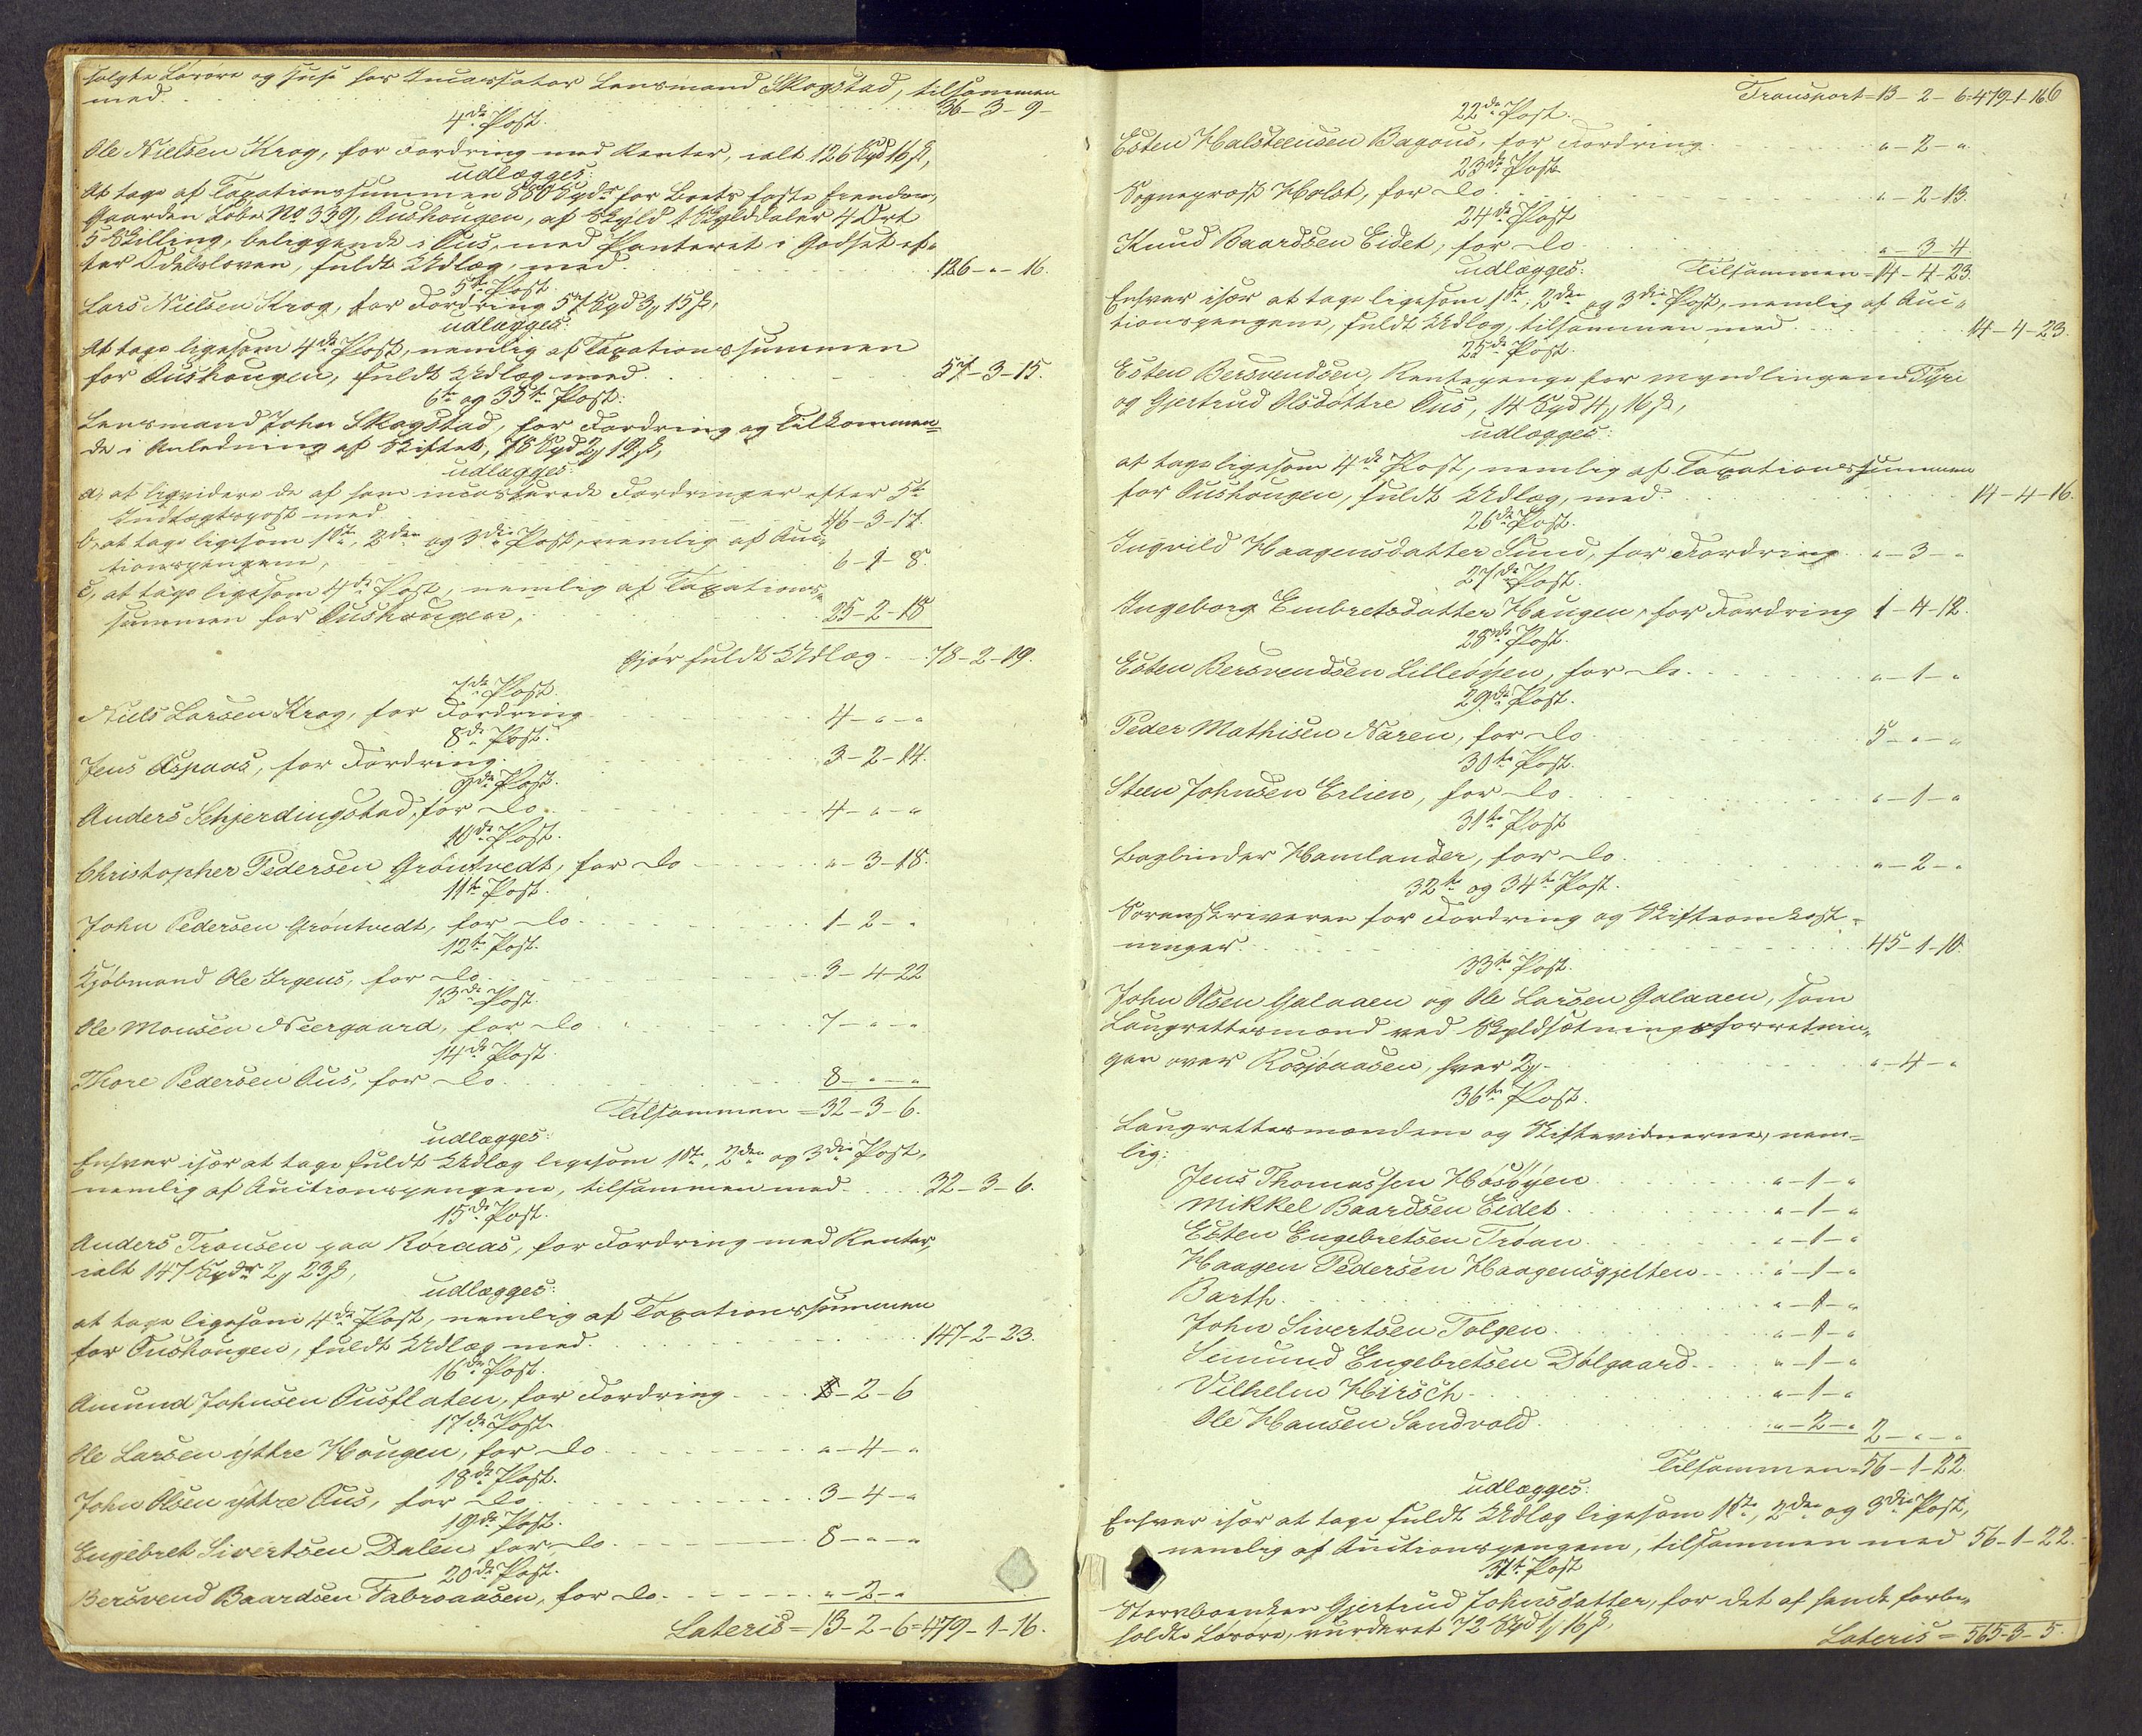 solgte Løsøre og Huse for Incassator Lensmand Skogstad, tilsammen
med 36-3-9-
4de Post.
Ole Nielsen Krog, for Fordring med Renter, ialt 126 Spd 16 ß,
udlægges:
At tage af Taxationssummen 800 Spdr for Boets faste Eiendom,
Gaarden Løbe No 339, Aushougen, af Skyld 1 Skylddaler 4 Ort
5 Skilling, beliggende i Aus, med Panteret i Godset ef-
ter Odelsloven, fuldt Udlæg, med 126-"-16.
5te Post.
Lars Nielsen Krog, for Fordring 57 Spd 3, 15 ß,
udlægges:
At tage ligesom 4de Post, nemlig af Taxationssummen
for Aushougen, fuldt Udlæg med 57-3-15.
6te og 35te Post:
Lensmand John Skogstad, for Fordring og Tilkommen-
de i Anledning af Skiftet, 78 Spd 2, 19 ß,
udlægges:
a, at liqvidere de af ham incasserede Fordringer efter 5te
Indtægtspost med 46-3-17.
b, at tage ligesom 1ste, 2den og 3die Post, nemlig af Auc-
tionspengene, 6-1-8.
c, at tage ligesom 4de Post, nemlig af Taxations-
summen for Aushougen, 25-2-18
Gjør fuldt Udlæg 78-2-19.
7de Post.
Niels Larsen Krog, for Fordring 4-"-"
8de Post.
Jens Aspaas, for Fordring. 3-2-14.
9de Post.
Anders Schjerdingstad, for do. 4-"-"
10de Post.
Christopher Pedersen Grøntvedt, for do "-3-18.
11te Post.
John Pedersen Grøntvedt, for do. 1-2-"
12te Post.
Kjøbmand Ole Irgens, for do. 3-4-22
13de Post.
Ole Monsen Neergaard, for do 7-"-"
14de Post
Thore Pedersen Aus, for do. 8-"-"
Tilsammen = 32-3-6.
udlægges:
Enhver især at tage fuldt Udlæg ligesom 1ste, 2den og 3die Post,
nemlig af Auctionspengene, tilsammen med 32-3-6.
15de Post.
Anders Tronsen paa Røraas, for Fordring med Renter,
ialt 147 Spdr 2, 23 ß,
udlægges:
at tage ligesom 4de Post, nemlig af Taxationssummen
for Aushougen, fuldt Udlæg med. 147-2-23.
16de Post.
Amund Johnsen Ausflaten, for Fordring -2-6
17de Post.
Ole Larsen yttre Hougen, for do "-4-"
18de Post.
John Olsen yttre Aus, for do. 3-4-"
19de Post.
Engebret Sivertsen Dalen, for do. 8-"-"
20de Post.
Bersvend Baardsen Fabroaasen, for do. "-2-"
Lateris = 13-2-6=479-1-16.
Transport = 13-2-6=479-1-16 6
22de Post.
Esten Halsteensen Bagaus, for Fordring "-2-"
23de Post.
Sogneprest Holst, for do. "-2-13.
24de Post
Knud Baardsen Eidet, for do "-3 4
udlægges: Tilsammen = 14-4-23.
Enhver især at tage ligesom 1ste, 2den og 3die Post, nemlig af Auc-
tionspengene, fuldt Udlæg, tilsammen med 14-4-23.
25de Post.
Esten Bersvendsen, Rentepenge for Myndlingene Tyri
og Gjertrud Olsdøttre Aus, 14 Spd 4, 16 ß,
udlægges:
at tage ligesom 4de Post, nemlig af Taxationssummen
for Aushougen, fuldt Udlæg, med 14-4-16.
26de Post.
Ingrild Haagensdatter Sund, for Fordring "-3-"
27de Post.
Ingeborg Embretsdatter Haugen, for Fordring 1-4-12.
28de Post.
Esten Bersvendsen Lilleøyen, for do. "-1-"
29de Post.
Peder Mathisen Naren, for do 5-"-"
30te Post.
Steen Johnsen Erlien, for do. "-1-"
31te Post
Bogbinder Hamlander, for do. "-2-"
32te og 34te Post.
Sorenskriveren for Fordring og Skifteomkost-
ninger. 45-1-10.
33te Post.
John Olsen Galaaen og Ole Larsen Galaaen, som
Laugrettesmænd ved Skyldsætningsforretnin-
gen over Rosjøaasen, hver 2,- "-4-"
36te Post.
Laugrettesmændene og Skiftevidnerne, nem-
lig:
Jens Thomassen Hosøyen "-1-"
Mikkel Baardsen Eidet "-1-"
Esten Engebretsen Trøan "-1-"
Haagen Pedersen Haagensgjelten "-1-"
Barth "-1-"
John Sivertsen Tolgen "-1-"
Semund Engebretsen Dølgaard "-1-"
Vilhelm Hirsch "-1-"
Ole Hansen Sandvold "-2-" 2-"-"
Tilsammen = 56-1-22.
udlægges:
Enhver især at tage fuldt Udlæg ligesom 1ste, 2den og 3die Post,
nemlig af Auctionspengene, tilsammen med 56-1-22.
37te Post
Stervboenken Gjertrud Johnsdatter, for det af hende forbe-
holdte Løsøre, vurderet 72 Spd 1, 16 ß,
Lateris = 565-3-5.